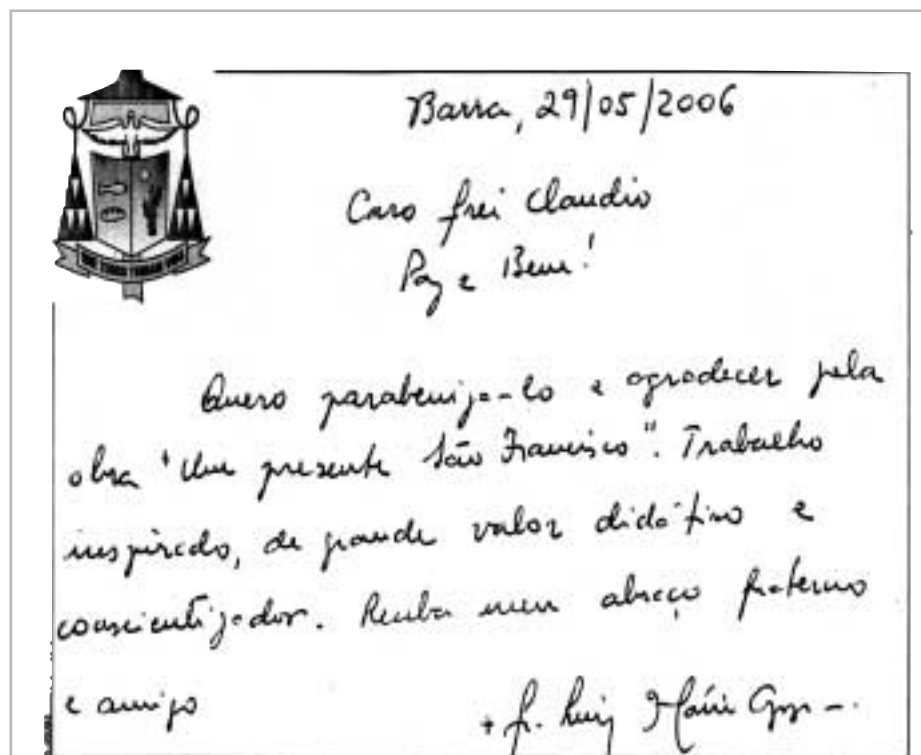 Barra, 29/05/2006
Caro frei Claudio
Paz e Bem!
Quero parabenizá-lo e agradecer pela
obra "Um presente São Francisco". Trabalho
inspirado, de grande valor didático e
conscientizador. Receba meu abraço fraterno
e amigo
+ fr. Luiz Flávio